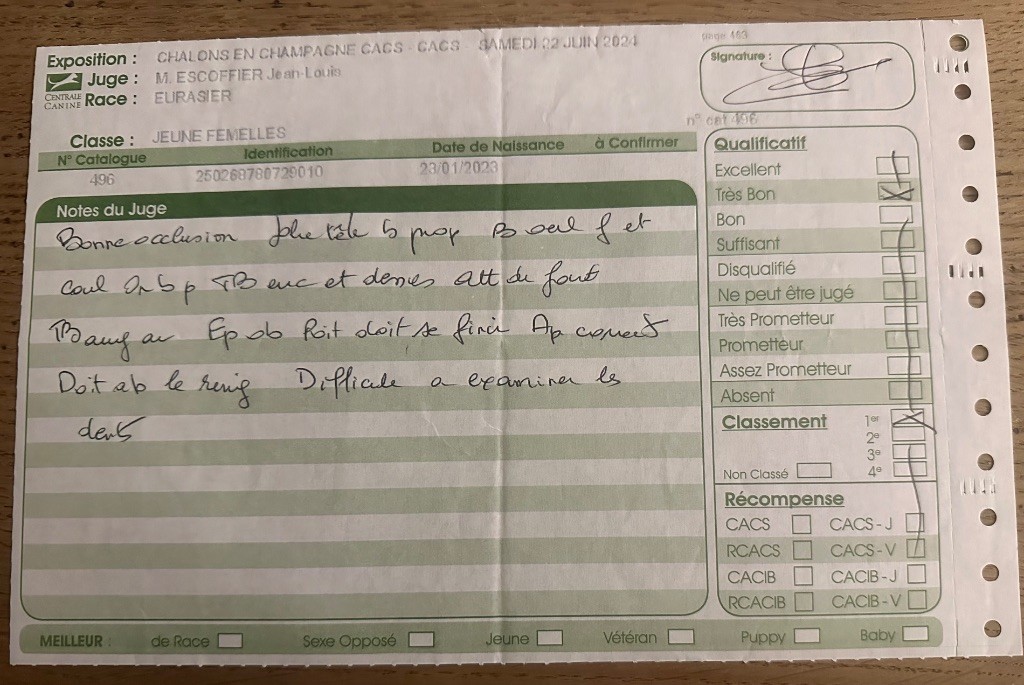 Exposition : CHALONS EN CHAMPAGNE CACS - CACS - SAMEDI 22 JUIN 2024
page 463
Juge : M. ESCOFFIER Jean-Louis
CENTRALE CANINE
Race : EURASIER
Signature :
n° cat 496
Classe : JEUNE FEMELLES
N° Catalogue Identification Date de Naissance à Confirmer
496 250268780729010 23/01/2023
Notes du Juge
Bonne occlusion Jolie tête b prop B oeil f et
coul b p TB enc et att de fouet
TB ang av Ep ob Poit doit se finir Ap correct
Doit ab le Difficile a examiner les
dents
Qualificatif
Excellent
Très Bon
Bon
Suffisant
Disqualifié
Ne peut être jugé
Très Prometteur
Prometteur
Assez Prometteur
Absent
Classement 1er
2e
3e
Non Classé 4e
Récompense
CACS CACS - J
RCACS CACS - V
CACIB CACIB - J
RCACIB CACIB - V
MEILLEUR : de Race Sexe Opposé Jeune Vétéran Puppy Baby